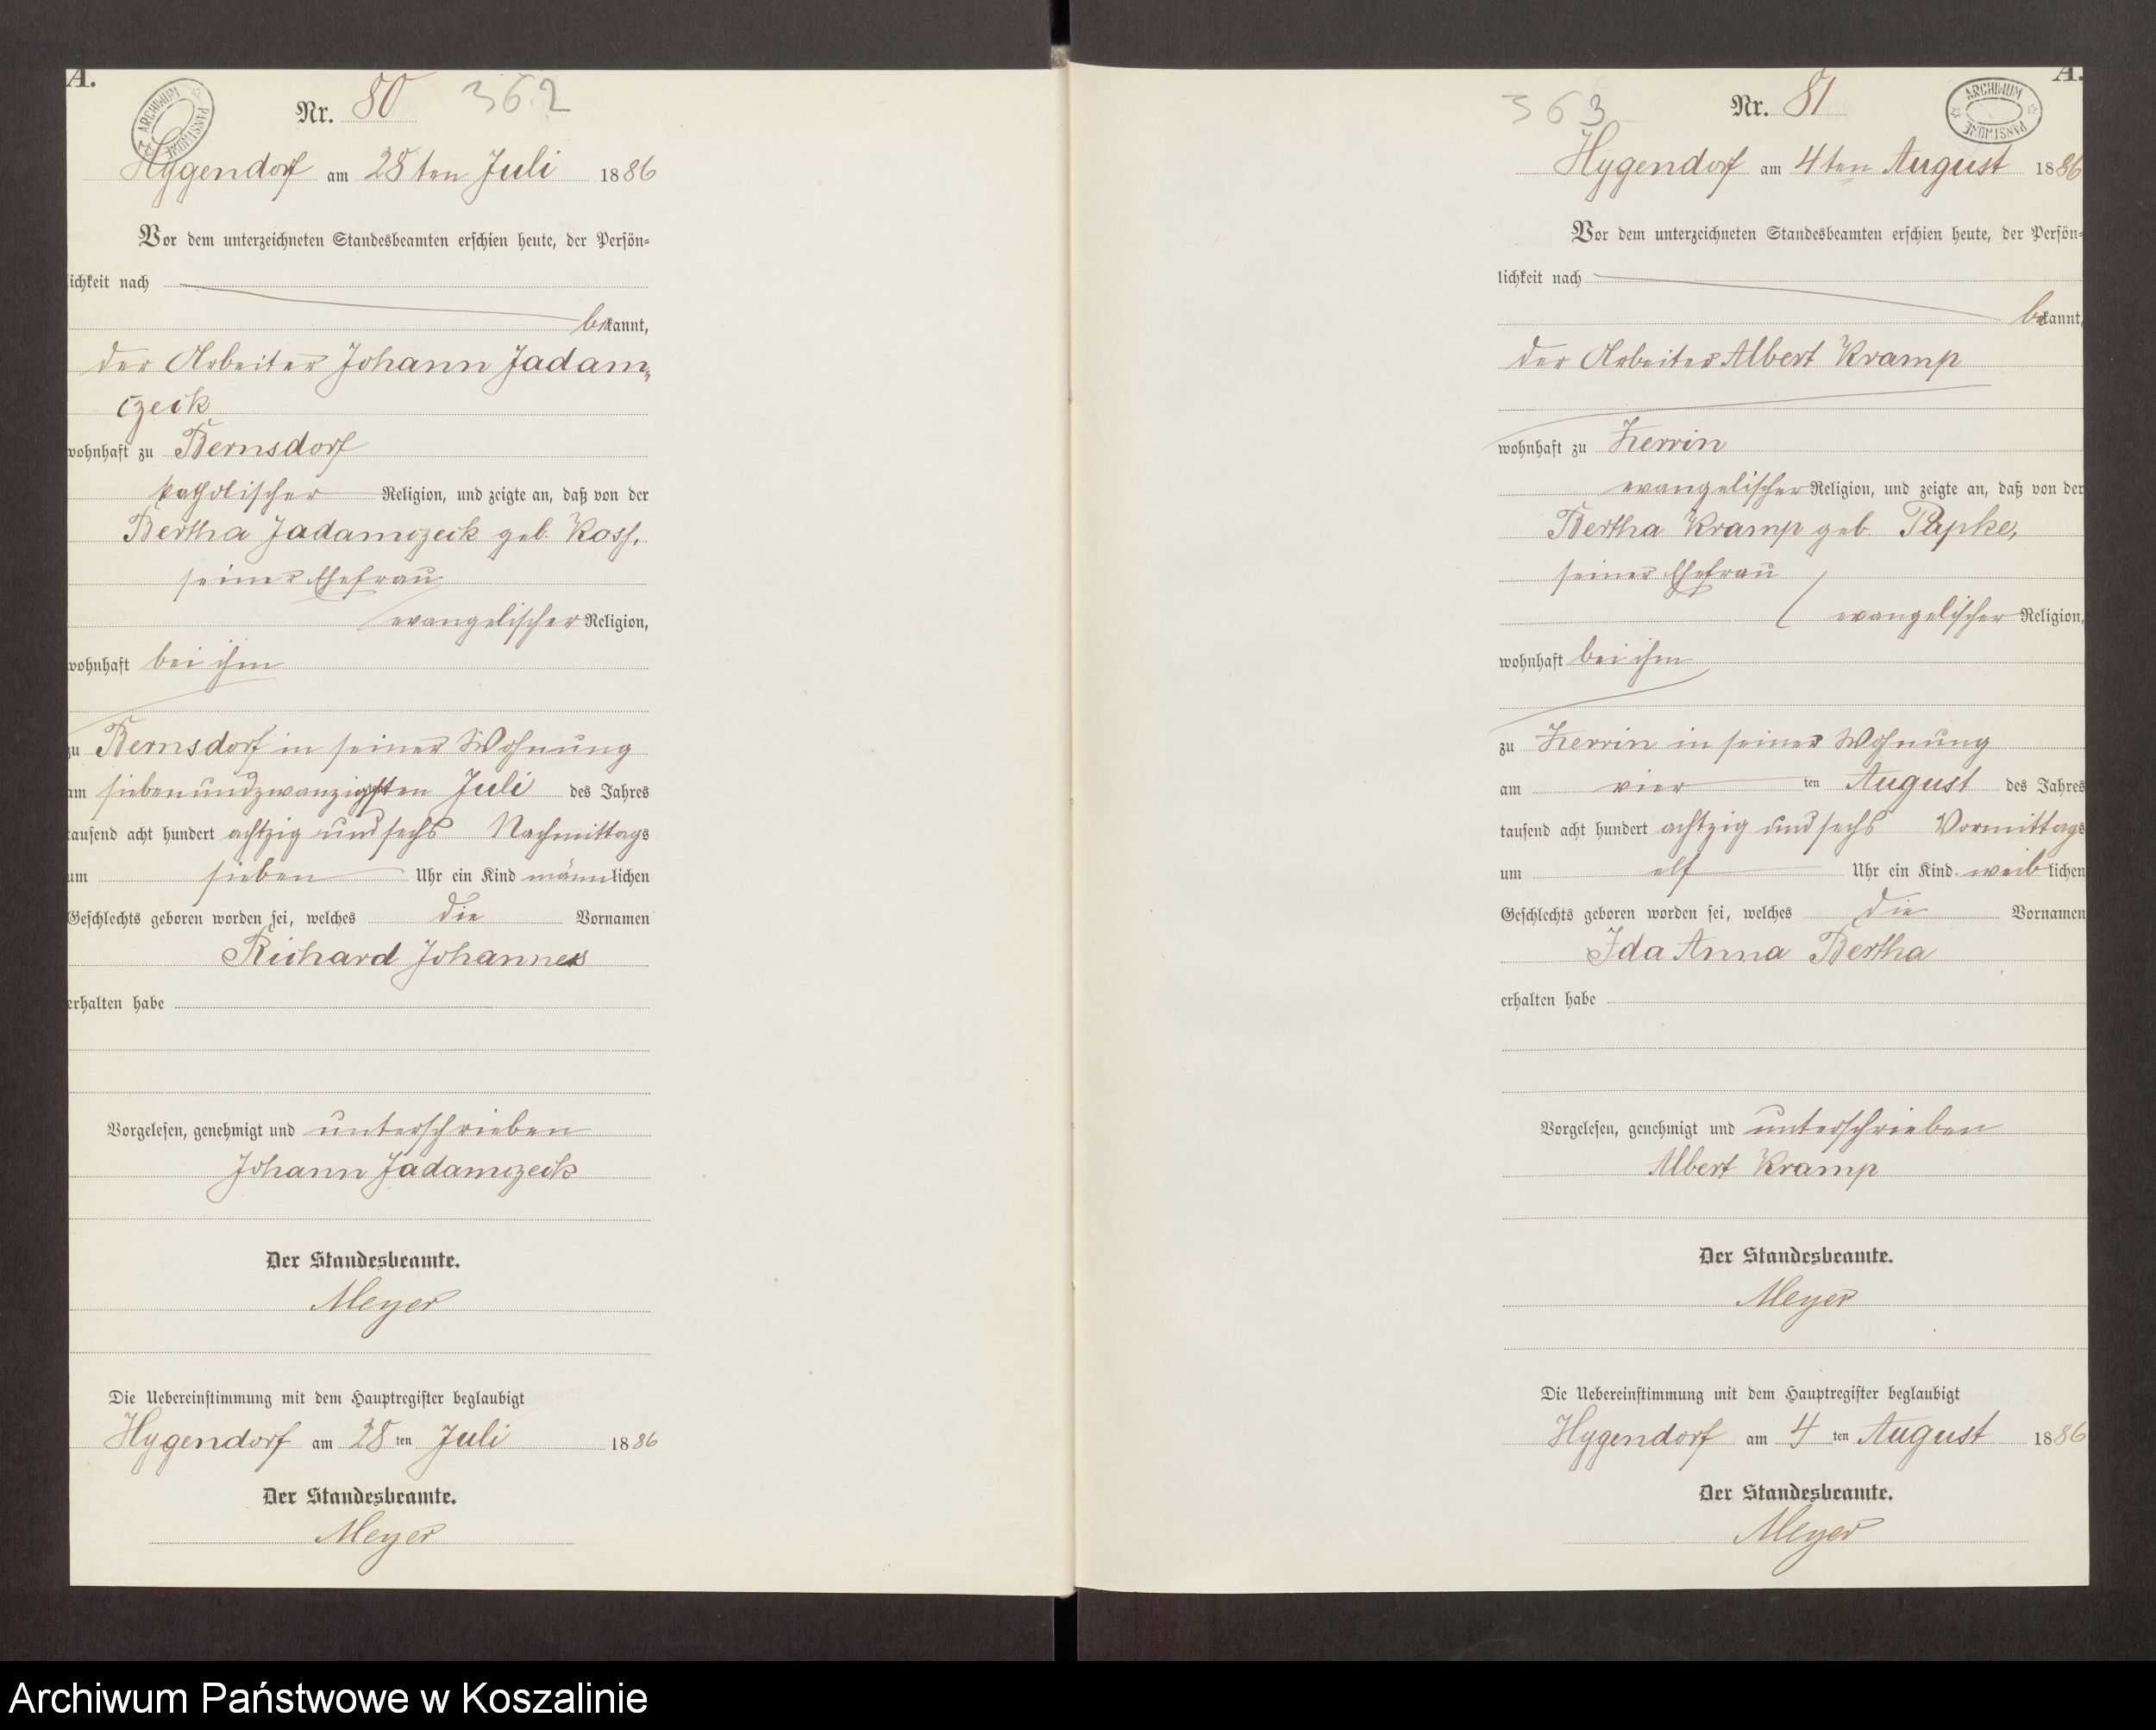 A.
ARCHIWUM PAŃSTWOWE
Nr. 80 362
Hygendorf am 28ten Juli 1886
Vor dem unterzeichneten Standesbeamten erschien heute, der Persön-
lichkeit nach
bekannt,
der Arbeiter Johann Jadam„
czeik
wohnhaft zu Bernsdorf
katholischer Religion, und zeigte an, daß von der
Bertha Jadamczeik geb. Koss,
seiner Ehefrau
evangelischer Religion,
wohnhaft bei ihm
zu Bernsdorf in seiner Wohnung
am siebenundzwanzigsten Juli des Jahres
tausend acht hundert achtzig und sechs Nachmittags
um sieben Uhr ein Kind männlichen
Geschlechts geboren worden sei, welches die Vornamen
Richard Johannes
erhalten habe
Vorgelesen, genehmigt und unterschrieben
Johann Jadamczeik
Der Standesbeamte.
Meyer
Die Uebereinstimmung mit dem Hauptregister beglaubigt
Hygendorf am 28 ten Juli 1886
Der Standesbeamte.
Meyer
A.
363 Nr. 81
ARCHIWUM PAŃSTWOWE
Hygendorf am 4ten August 1886
Vor dem unterzeichneten Standesbeamten erschien heute, der Persön-
lichkeit nach
bekannt,
der Arbeiter Albert Kramp
wohnhaft zu Zerrin
evangelischer Religion, und zeigte an, daß von der
Bertha Kramp geb. Papke,
seiner Ehefrau
evangelischer Religion,
wohnhaft bei ihm
zu Zerrin in seiner Wohnung
am vier ten August des Jahres
tausend acht hundert achtzig und sechs Vormittags
um elf Uhr ein Kind weiblichen
Geschlechts geboren worden sei, welches die Vornamen
Ida Anna Bertha
erhalten habe
Vorgelesen, genehmigt und unterschrieben
Albert Kramp
Der Standesbeamte.
Meyer
Die Uebereinstimmung mit dem Hauptregister beglaubigt
Hygendorf am 4 ten August 1886
Der Standesbeamte.
Meyer
Archiwum Państwowe w Koszalinie